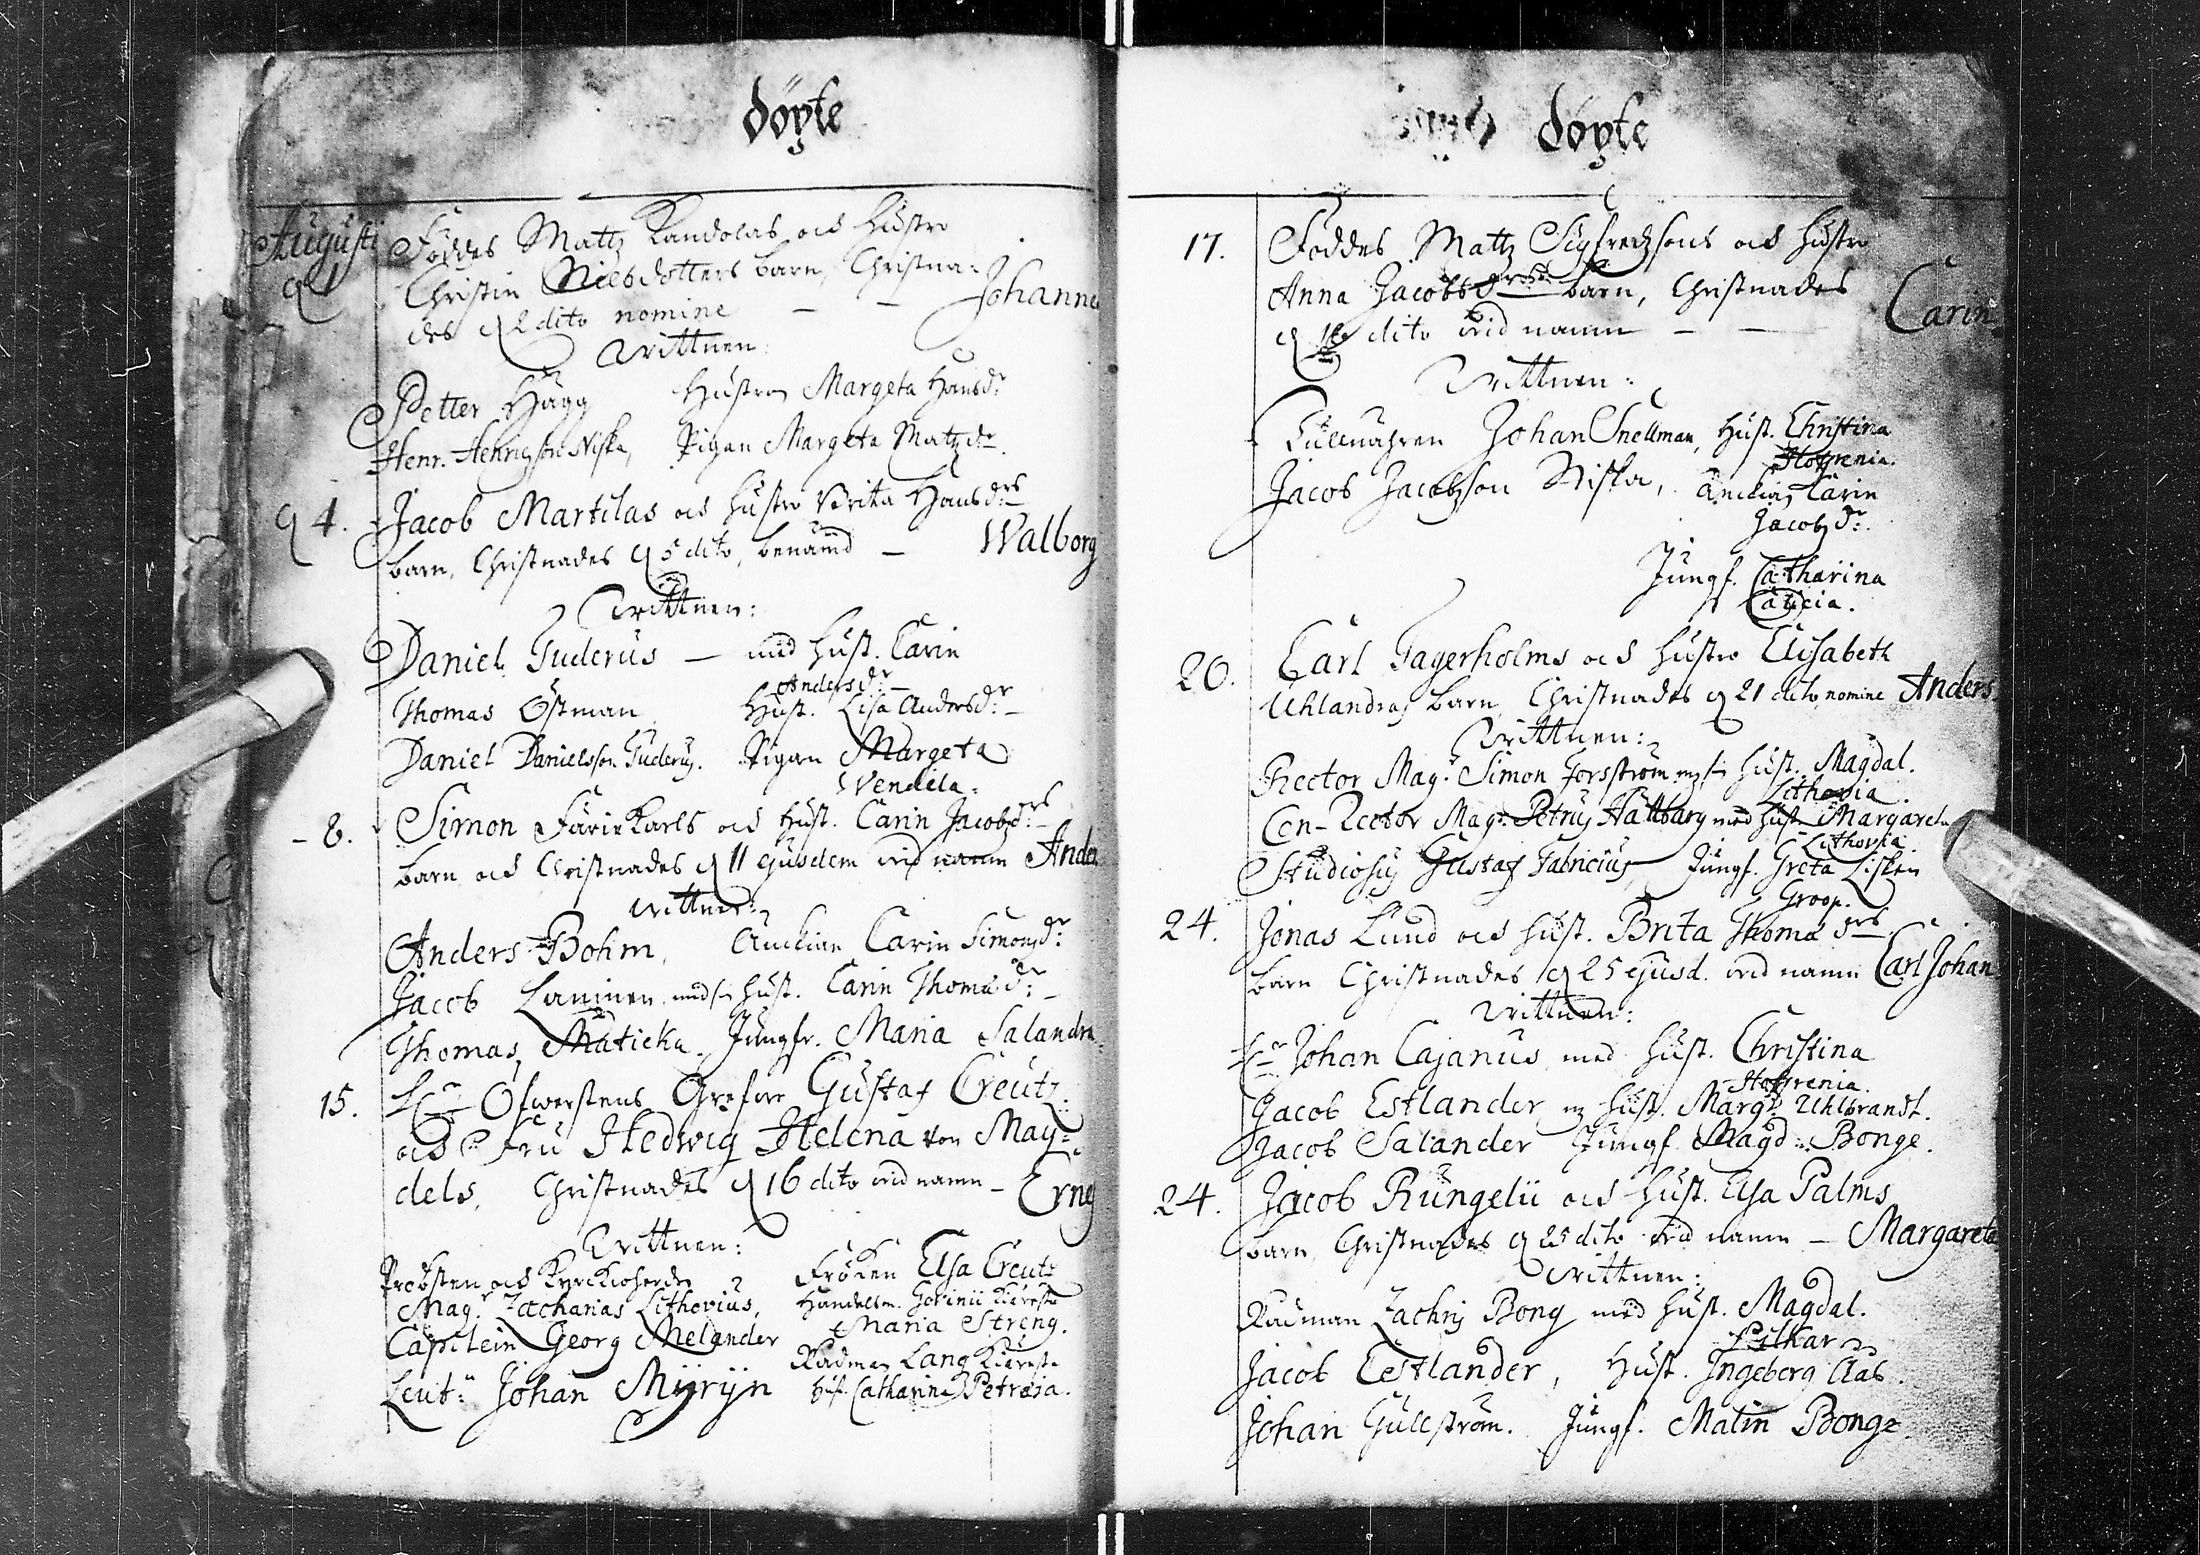 döpte
Augusti
d 1
Föddes Mattz Kandolas och hustro
Christin Nilsdotters barn, Christna-
des d 2 dito nomine — Johannes
Wittnen:
Petter Hägg Hustron Margeta Hansdr
Henr. Henrigson Niska, Pigan Margeta Matzdr.
d 4. Jacob Martilas och hustro Brita Hansdrs
barn, Christnades d 5 dito, benämd — Walborg
Wittnen:
Daniel Tuderus — med hust. Carin
Andersdr
Thomas Östman, Hust. Lisa Andersdr
Daniel Danielsson Tuderus. Pigan Margeta
Wendela.
8. Simon Färikarls och hust. Carin Jacobsdrs
barn och Christnades d 11 ejusdem wid namn Anders
Wittnen:
Anders Bohm, Änckian Carin Simonsdr
Jacob Laninen med sin hust. Carin Thomædr
Thomas Maticka. Jungfr. Maria Salandra.
15. Hr Öfwerstens Grefwe Gustaf Creutz
och Fru Hedwig Helena von May-
dels, Christnades d 16 dito wid namn — Erns
Wittnen:
Probsten och Kyrckioherden Fröken Elsa Creutz
Mag. Zacharias Lithovius, Handelsm. Corinii Kiäresta
Maria Streng.
Capitein Georg Melander Rådman Lang Kiäresta
Leut: Johan Mÿrÿn hust. Catharina Petræia.
döpte
17. Föddes Mattz Sigfredzsons och hustro
Anna Jacobsdrs barn, Christnades
d 18 dito wid namn — — Carin
Wittnen:
Tullnären Johan Snellman, Hust. Christina
Hofrenia.
Jacob Jacobzson Niska, Änckian Carin
Jacobzdr.
Jungf. Catharina
Calicia.
20. Carl Fagerholms och hustro Elisabeth
Uhlandras barn, Christnades d 21 dito, nomine Anders
Wittnen:
Rector Mag. Simon Forsström m sin hust. Magdal.
Lithovia.
Con-Rector Mag. Petrus Hallbärg med hust. Margareta
Lithovia.
Studiosus Gustaf Fabricius, Jungf. Greta Lisken
Groop.
24. Jonas Lund och hust. Brita Thomædrs
barn Christnades d 25 ejusd. wid namn Carl Johan
Wittnen:
Hr Johan Cajanus med hust. Christina
Hofrenia.
Jacob Estlander m hust. Marg. Uhlbrandt.
Jacob Salander Jungf. Magd. Bonge.
24. Jacob Rungelii och hust. Elsa Palms
barn, Christnades d 25 dito wid namn — Margareta
Wittnen:
Rådman Zachris Bong med hust. Magdal.
Pilkar
Jacob Estlander, Hust. Ingeborg Clas.
Johan Gullström. Jungf. Malin Bonge.